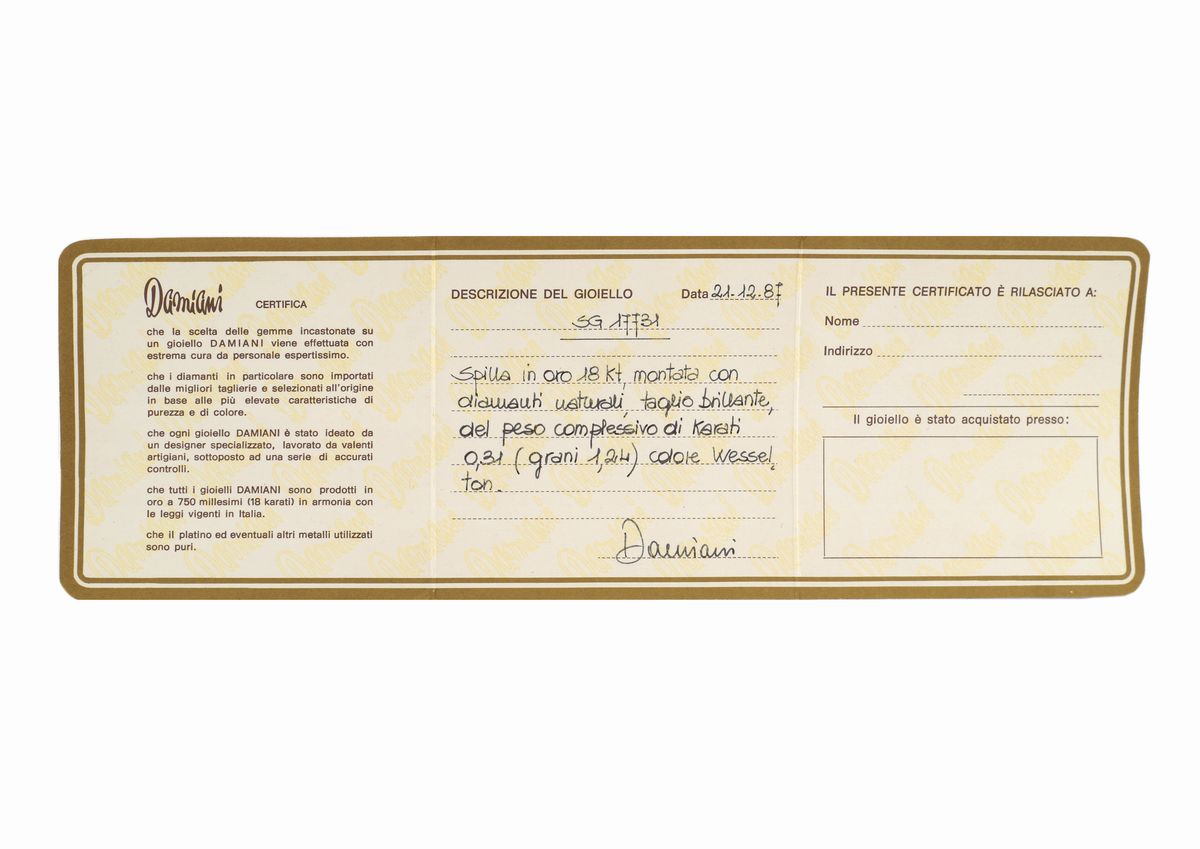 Damiani CERTIFICA
che la scelta delle gemme incastonate su
un gioiello DAMIANI viene effettuata con
estrema cura da personale espertissimo.
che i diamanti in particolare sono importati
dalle migliori taglierie e selezionati all'origine
in base alle più elevate caratteristiche di
purezza e di colore.
che ogni gioiello DAMIANI è stato ideato da
un designer specializzato, lavorato da valenti
artigiani, sottoposto ad una serie di accurati
controlli.
che tutti i gioielli DAMIANI sono prodotti in
oro a 750 millesimi (18 karati) in armonia con
le leggi vigenti in Italia.
che il platino ed eventuali altri metalli utilizzati
sono puri.
DESCRIZIONE DEL GIOIELLO Data 21.12.87
SG 17731
Spilla in oro 18 Kt, montata con
diamanti naturali, taglio brillante,
del peso complessivo di Karati
0,31 (grani 1,24) colore Wessel,
ton.
Damiani
IL PRESENTE CERTIFICATO È RILASCIATO A:
Nome
Indirizzo
Il gioiello è stato acquistato presso: